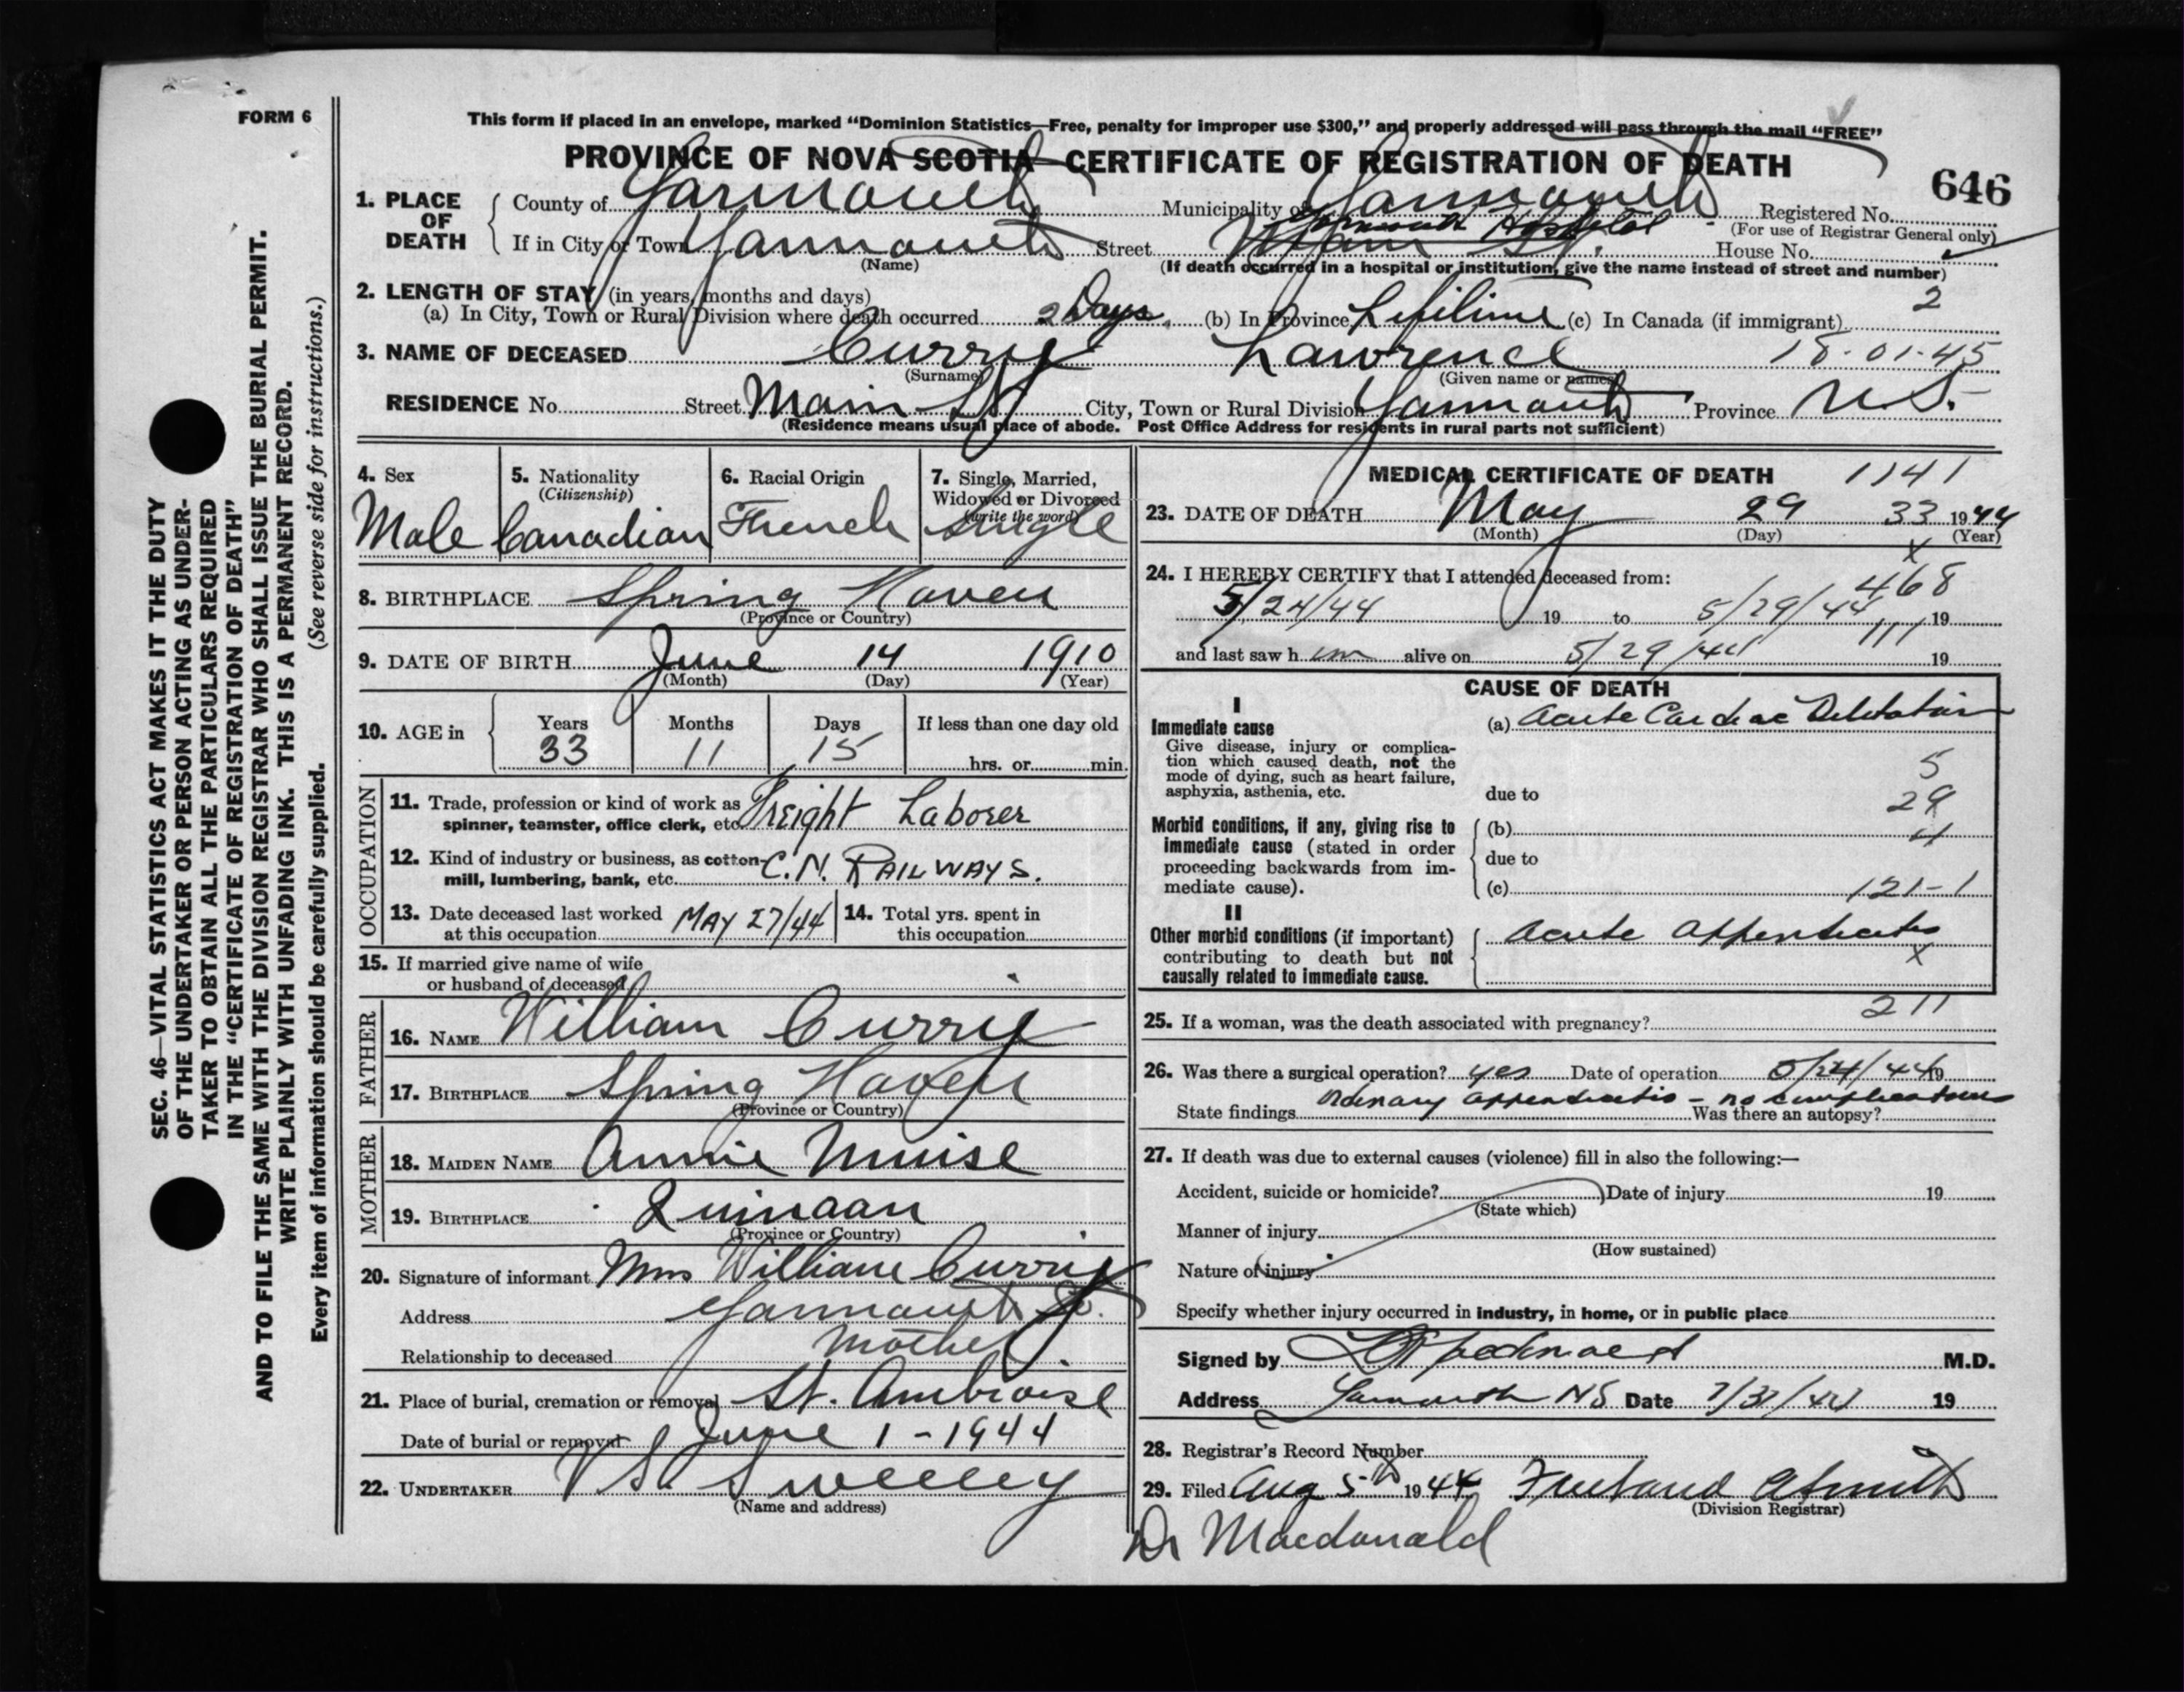 FORM 6
This form if placed in an envelope, marked “Dominion Statistics—Free, penalty for improper use $300,” and properly addressed will pass through the mail “FREE”
PROVINCE OF NOVA SCOTIA—CERTIFICATE OF REGISTRATION OF DEATH
646
1. PLACE OF DEATH
County of Yarmouth Municipality of Yarmouth Registered No.
(For use of Registrar General only)
If in City or Town Yarmouth Street Main St. Yarmouth Hospital House No.
(Name)
(If death occurred in a hospital or institution, give the name instead of street and number)
2. LENGTH OF STAY (in years, months and days)
(a) In City, Town or Rural Division where death occurred 2 Days. (b) In Province Lifetime (c) In Canada (if immigrant) 2
3. NAME OF DECEASED Currie Lawrence 18-01-45
(Surname) (Given name or names)
RESIDENCE No. Street Main St City, Town or Rural Division Yarmouth Province N.S.
(Residence means usual place of abode. Post Office Address for residents in rural parts not sufficient)
4. Sex
Male
5. Nationality
(Citizenship)
Canadian
6. Racial Origin
French
7. Single, Married,
Widowed or Divorced
(write the word)
Single
8. BIRTHPLACE Spring Haven
(Province or Country)
9. DATE OF BIRTH June 14 1910
(Month) (Day) (Year)
10. AGE in
Years Months Days If less than one day old
33 11 15 hrs. or min.
OCCUPATION
11. Trade, profession or kind of work as
spinner, teamster, office clerk, etc. Freight Laborer
12. Kind of industry or business, as cotton-
mill, lumbering, bank, etc. C.N. RAILWAYS.
13. Date deceased last worked
at this occupation MAY 27/44
14. Total yrs. spent in
this occupation
15. If married give name of wife
or husband of deceased
FATHER
16. NAME William Currie
17. BIRTHPLACE Spring Haven
(Province or Country)
MOTHER
18. MAIDEN NAME Annie Muise
19. BIRTHPLACE Quinaan
(Province or Country)
20. Signature of informant Mrs William Currie
Address Yarmouth
Relationship to deceased Mother
21. Place of burial, cremation or removal St. Ambroise
Date of burial or removal June 1 - 1944
22. UNDERTAKER V S Sweeney
(Name and address)
MEDICAL CERTIFICATE OF DEATH 1141
23. DATE OF DEATH May 29 33 1944
(Month) (Day) (Year)
x
24. I HEREBY CERTIFY that I attended deceased from:
468
5/24/44 19 to 5/29/44 19
111
and last saw h im alive on 5/29/44 19
CAUSE OF DEATH
I
Immediate cause
Give disease, injury or complica-
tion which caused death, not the
mode of dying, such as heart failure,
asphyxia, asthenia, etc.
(a) Acute Cardiac Dilatation
5
due to
29
Morbid conditions, if any, giving rise to
immediate cause (stated in order
proceeding backwards from im-
mediate cause).
(b)
due to
(c) 121-1
II
Other morbid conditions (if important)
contributing to death but not
causally related to immediate cause.
Acute Appendicitis
x
211
25. If a woman, was the death associated with pregnancy?
26. Was there a surgical operation? yes Date of operation 5/24/44 19
State findings Ordinary appendicitis - no complications Was there an autopsy?
27. If death was due to external causes (violence) fill in also the following:—
Accident, suicide or homicide? Date of injury 19
(State which)
Manner of injury
(How sustained)
Nature of injury
Specify whether injury occurred in industry, in home, or in public place
Signed by M.D.
Address Yarmouth NS Date 7/31/44 19
28. Registrar's Record Number
29. Filed Aug 5th 1944
(Division Registrar)
Dr Macdonald
SEC. 46—VITAL STATISTICS ACT MAKES IT THE DUTY
OF THE UNDERTAKER OR PERSON ACTING AS UNDER-
TAKER TO OBTAIN ALL THE PARTICULARS REQUIRED
IN THE “CERTIFICATE OF REGISTRATION OF DEATH”
AND TO FILE THE SAME WITH THE DIVISION REGISTRAR WHO SHALL ISSUE THE BURIAL PERMIT.
WRITE PLAINLY WITH UNFADING INK. THIS IS A PERMANENT RECORD.
Every item of information should be carefully supplied. (See reverse side for instructions.)